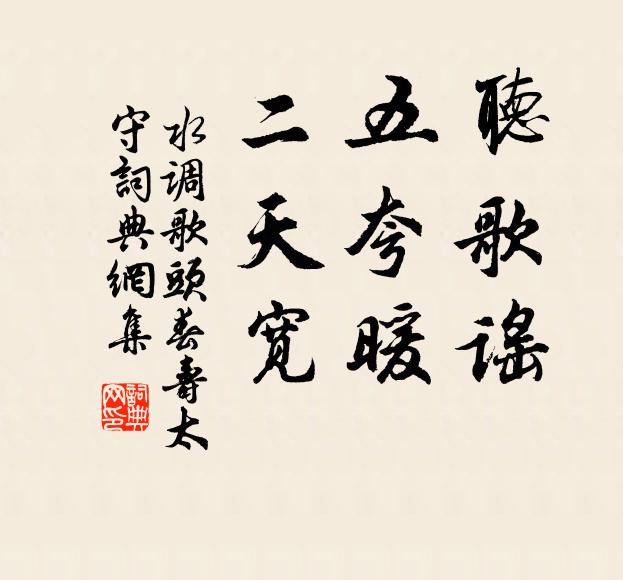 聽歌謠
五夸暖
二天寬
水调歌頭春壽太
守詞典網集
詞典网印